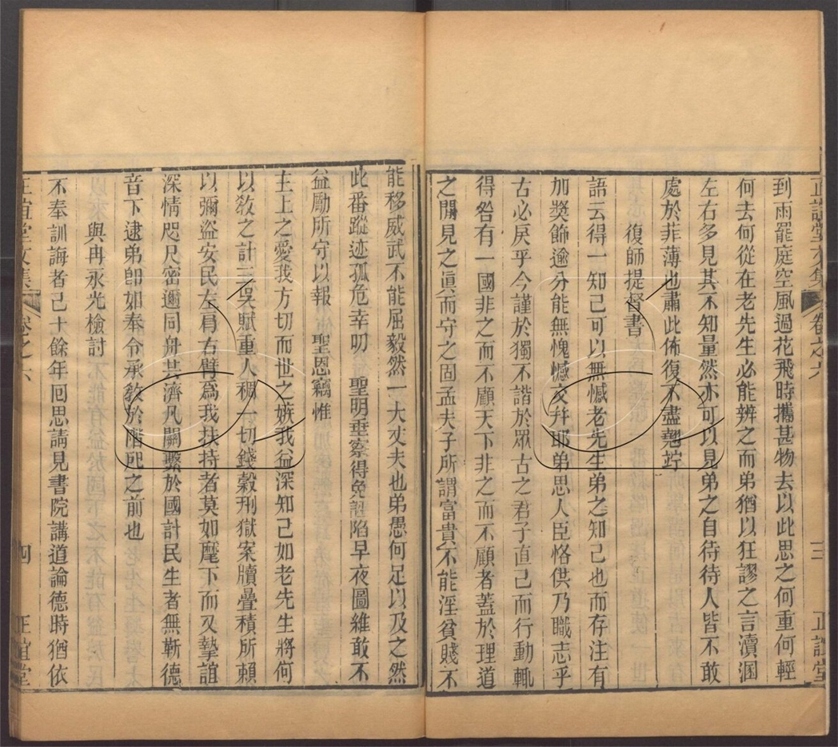 到雨罷庭空風過花飛時攜甚物去以此思之何重何輕
何去何從在老先生必能辨之而弟猶以狂謬之言瀆溷
左右多見其不知量然亦可以見弟之自待待人皆不敢
處於菲薄也肅此佈復不盡翹竚
復師提督書
語云得一知己可以無憾老先生弟之知己也而存注有
加獎飾逾分能無愧憾交幷耶弟思人臣恪供乃職志乎
古必戾乎今謹於獨不諧於眾古之君子直己而行動輒
得咎有一國非之而不顧天下非之而不顧者蓋於理道
之閒見之眞而守之固孟夫子所謂富貴不能淫貧賤不
能移威武不能屈毅然一大丈夫也弟愚何足以及之然
此番蹤迹孤危幸叨 聖明垂察得免謟陷早夜圖維敢不
益勵所守以報 聖恩竊惟
主上之愛我方切而世之嫉我益深知己如老先生將何
以敎之計三吳賦重人稠一切錢穀刑獄案牘疊積所賴
以彌盜安民左肩右臂爲我扶持者莫如麾下而又摯誼
深情咫尺密邇同舟共濟凡關繫於國計民生者無靳德
音下逮弟卽如奉令承敎於階戺之前也
與冉永光檢討
不奉訓誨者已十餘年回思請見書院講道論德時猶依
正誼堂文集
卷之六
三
正誼堂
正誼堂文集
卷之六
四
正誼堂